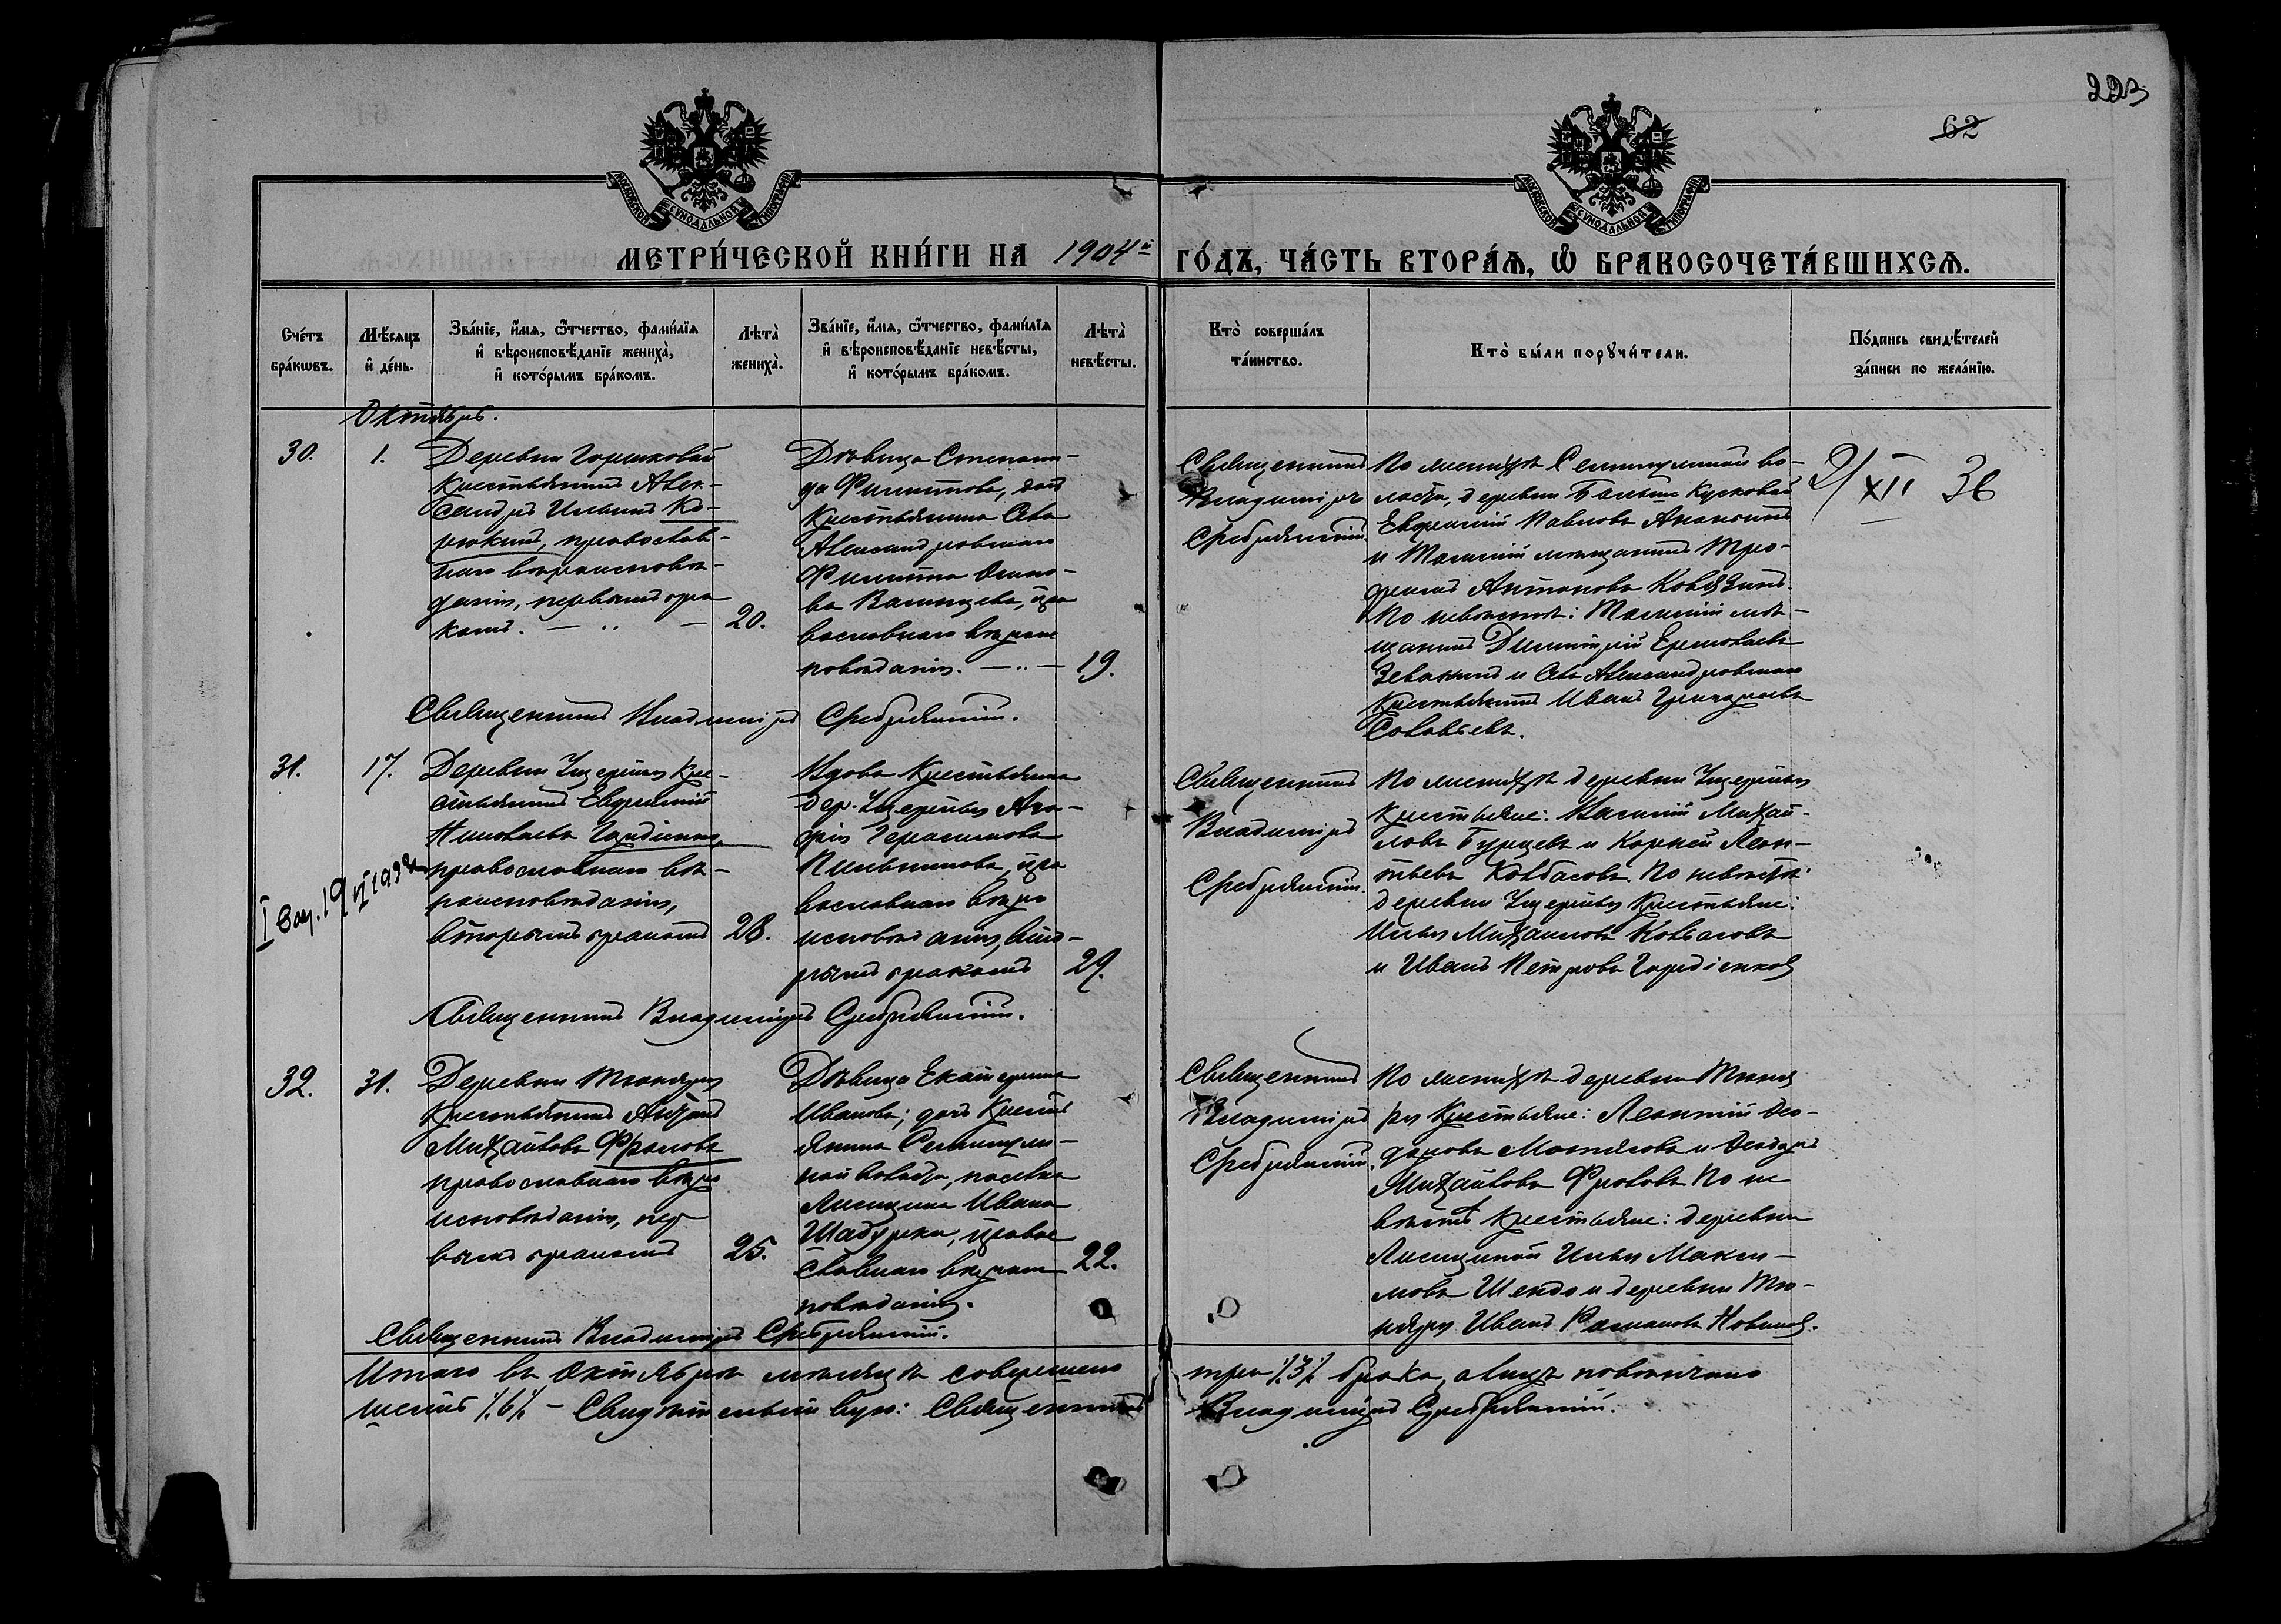 223
62
МОСКОВСКОЙ СУНОДАЛЬНОЙ ТИПОГРАФІИ
МОСКОВСКОЙ СУНОДАЛЬНОЙ ТИПОГРАФІИ
МЕТРИ́ЧЕСКОЙ КНИ́ГИ НА 1904й ГО́ДЪ, ЧА́СТЬ ВТОРА́Ѧ, Ѡ БРАКОСОЧЕТА́ВШИХСѦ.
Сче́тъ бра́кѡвъ.
Мѣ́сѧцъ и҆ де́нь.
Зва́нїе, и҆́мѧ, ѻ҆́тчество, фами́лїѧ и҆ вѣроисповѣ́данїе жениха̀, и҆ кото́рымъ бра́комъ.
Лѣта̀ жениха̀.
Зва́нїе, и҆́мѧ, ѻ҆́тчество, фами́лїѧ и҆ вѣроисповѣ́данїе невѣ́сты, и҆ кото́рымъ бра́комъ.
Лѣта̀ невѣ́сты.
Кто̀ соверша́лъ та́инство.
Кто̀ бы́ли порꙋчи́тели.
По́дпись свидѣ́телей за́писи по жела́нїю.
Октябрь.
30.
1.
Деревни Горшковой
крестьянинъ Алек-
сандръ Ильинъ Ко-
рюкинъ, православ-
наго вѣроисповѣ-
данія, первымъ бра
комъ. — „ —
20.
Дѣвица Степани-
да Филиппова, дочь
крестьянина Села
Александровскаго
Филиппа Осипо-
ва Валищева, пра
вославнаго вѣроис
повѣданія. — „ —
19.
Священникъ
Владиміръ
Сребрянскій.
По женихѣ Семилужной во-
лости, деревни Больше Кусковой
Евфимій Павловъ Ананьинъ
и Томскій мѣщанинъ Тро-
фимъ Антоновъ Ковязинъ.
По невѣстѣ: Томскій мѣ-
щанинъ Димитрій Ермолаевъ
Зевакинъ и Села Александровскаго
крестьянинъ Иванъ Григорьевъ
Соловьевъ.
2/XII 36
Священникъ Владиміръ Сребрянскій.
31.
17.
Деревни
крестьянинъ Евфимій
Николаевъ Гордіенко,
православнаго вѣ-
роисповѣданія,
вторымъ бракомъ
28.
Вдова крестьянина
дер. Ага-
фія Герасимова
Пильникова, пра
вославнаго вѣро
исповѣданія, вто-
рымъ бракомъ
29.
Священникъ
Владиміръ
Сребрянскій.
По женихѣ деревни
крестьяне: Василій Михай-
ловъ Бурцевъ и Корней Леон-
тьевъ Колбасовъ. По невѣстѣ:
деревни крестьяне:
Илья Михайловъ Колбасовъ
и Иванъ Петровъ Гордіенковъ
Священникъ Владиміръ Сребрянскій.
32.
31.
Деревни
крестьянинъ
Михайловъ Фроловъ
православнаго вѣро
исповѣданія, пер-
вымъ бракомъ
25.
Дѣвица Екатерина
Иванова; дочь крестья
янина Семилуж-
ной волости, поселка
Лисицина Ивана
Шадурки, правос
славнаго вѣроис
повѣданія.
22.
Священникъ
Владиміръ
Сребрянскій.
По женихѣ деревни
крестьяне: Леонтій Ѳео-
доровъ и Ѳеодоръ
Михайловъ Фроловъ По не
вѣстѣ крестьяне: деревни
Лисициной Илья Макси-
мовъ Шендо и деревни
Иванъ Романовъ Новиковъ.
Священникъ Владиміръ Сребрянскій.
Итого въ Октябрѣ мѣсяцѣ совершено три /3/ брака, а лицъ повѣнчано
шесть /6/ — Свидѣтельствую: Священникъ Владиміръ Сребрянскій.